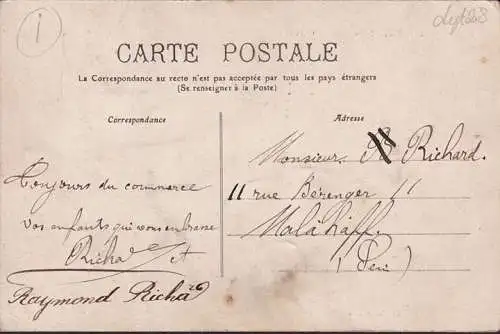 1
CARTE POSTALE
La Correspondance au recto n'est pas acceptée par tous les pays étrangers
(Se renseigner à la Poste)
Correspondance
Adresse
Monsieur Richard.
11 rue Bérenger 11
Malakaff.
(Seine)
Toujours du commerce
vos enfants qui vous embrasse
Richa et
Raymond Richa